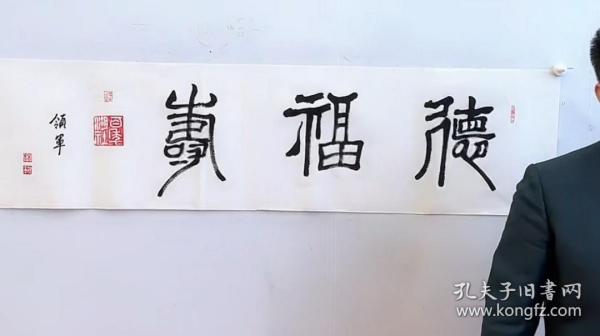 德福壽
領軍
孔夫子旧書网
www.kongfz.com